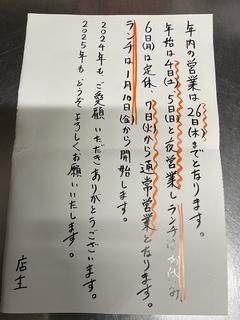 年内の営業は26日(木)までとなります。
年始は4日(土)5日(日)と夜営業しランチはお休み
6日(月)は定休、7日(火)から通常営業となります。
ランチは1月10日(金)から開始します。
2024年もご愛顧いただきありがとうございます。
2025年もどうぞよろしくお願いいたします。
店主